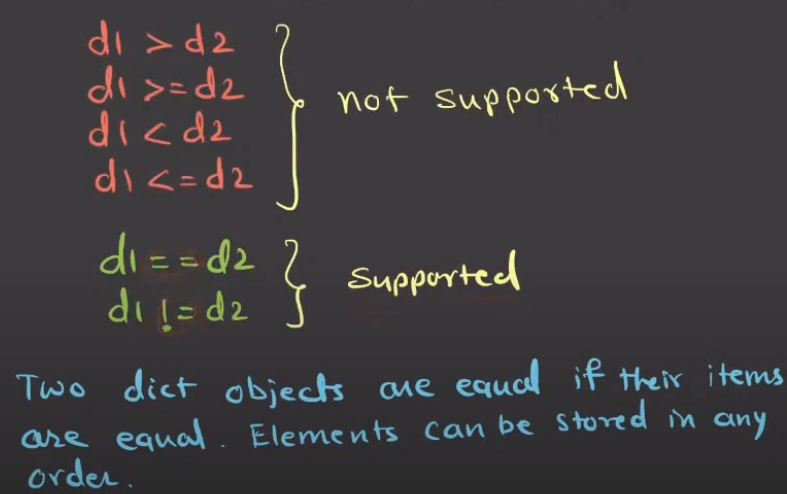 d1 > d2
d1 >= d2
d1 < d2
d1 <= d2
not supported
d1 == d2
d1 != d2
supported
Two dict objects are equal if their items
are equal. Elements can be stored in any
order.